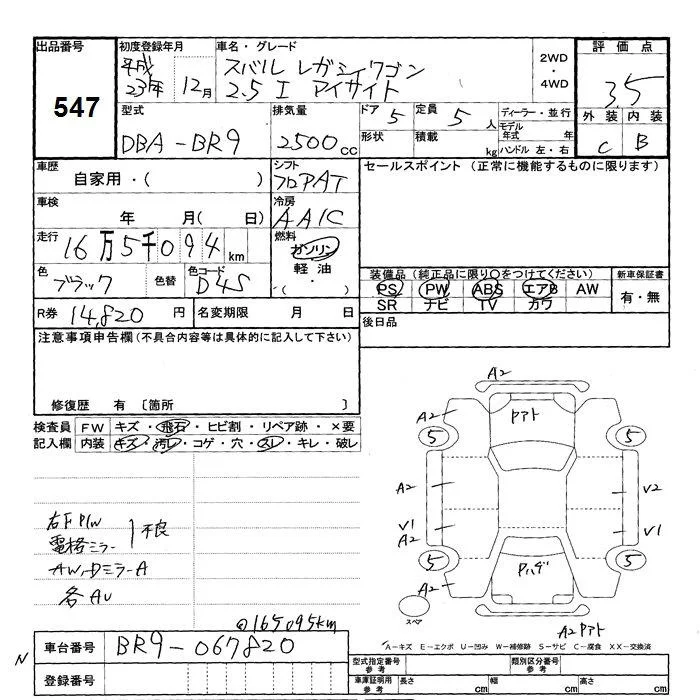 出品番号 初度登録年月 車名・グレード 2WD・4WD 評価点
547 平成23年 12月 スバル レガシィワゴン 3.5
2.5 I アイサイト
型式 排気量 ドア 5 定員 5人 ディーラー・並行 外装 内装
DBA-BR9 2500cc 形状 積載 kg モデル年式 年 C B
ハンドル 左・右
車歴 シフト セールスポイント (正常に機能するものに限ります)
自家用・( ) フロアAT
車検 冷房
年 月( 日) AAIC
走行 燃料
16万5千094km ガソリン
軽油
・( )
色 色替 色コード 装備品 (純正品に限り○をつけてください) 新車保証書
ブラック D4S PS PW ABS エアB AW 有・無
SR ナビ TV カワ
R券 14,820円 名変期限 月 日 後日品
注意事項申告欄(不具合内容等は具体的に記入して下さい)
修復歴 有 〔箇所 〕
検査員 FW キズ・飛石・ヒビ割・リペア跡・×要
記入欄 内装 キズ・汚れ・コゲ・穴・スレ・キレ・破レ
A2
A2 Pアト
5 5
A2 V2
V1 V1
A2
5 5
A2 Pハゲ
スペア
A2 Pアト
右F P/W
電格ミラー 不良
AW,Dミラー A
各AU
@165095km
N 車台番号 BR9-067820
登録番号
A-キズ E-エクボ U-凹み W-補修跡 S-サビ C-腐食 XX-交換済
型式指定番号 参考 類別区分番号 参考
車庫証明用 参考 長さ cm 幅 cm 高さ cm